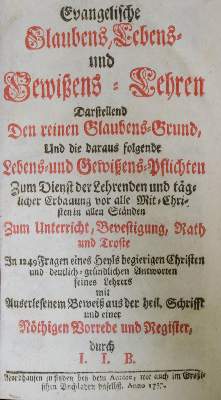 Evangelische
Glaubens, Lebens-
und
Gewißens-Lehren
Darstellend
Den reinen Glaubens-Grund,
Und die daraus folgende
Lebens-und Gewißens-Pflichten
Zum Dienst der Lehrenden und täg-
licher Erbauung vor alle Mit-Chri-
sten in allen Ständen
Zum Unterricht, Bevestigung, Rath
und Troste
In 1249 Fragen eines Heyls begierigen Christen
und deutlich-gründlichen Antworten
seines Lehrers
mit
Auserlesenem Beweiß aus der heil. Schrifft
und einer
Nöthigen Vorrede und Register,
durch
I. I. B.
zu finden bey dem Autore, wie auch im
Buchladen daselbst. Anno